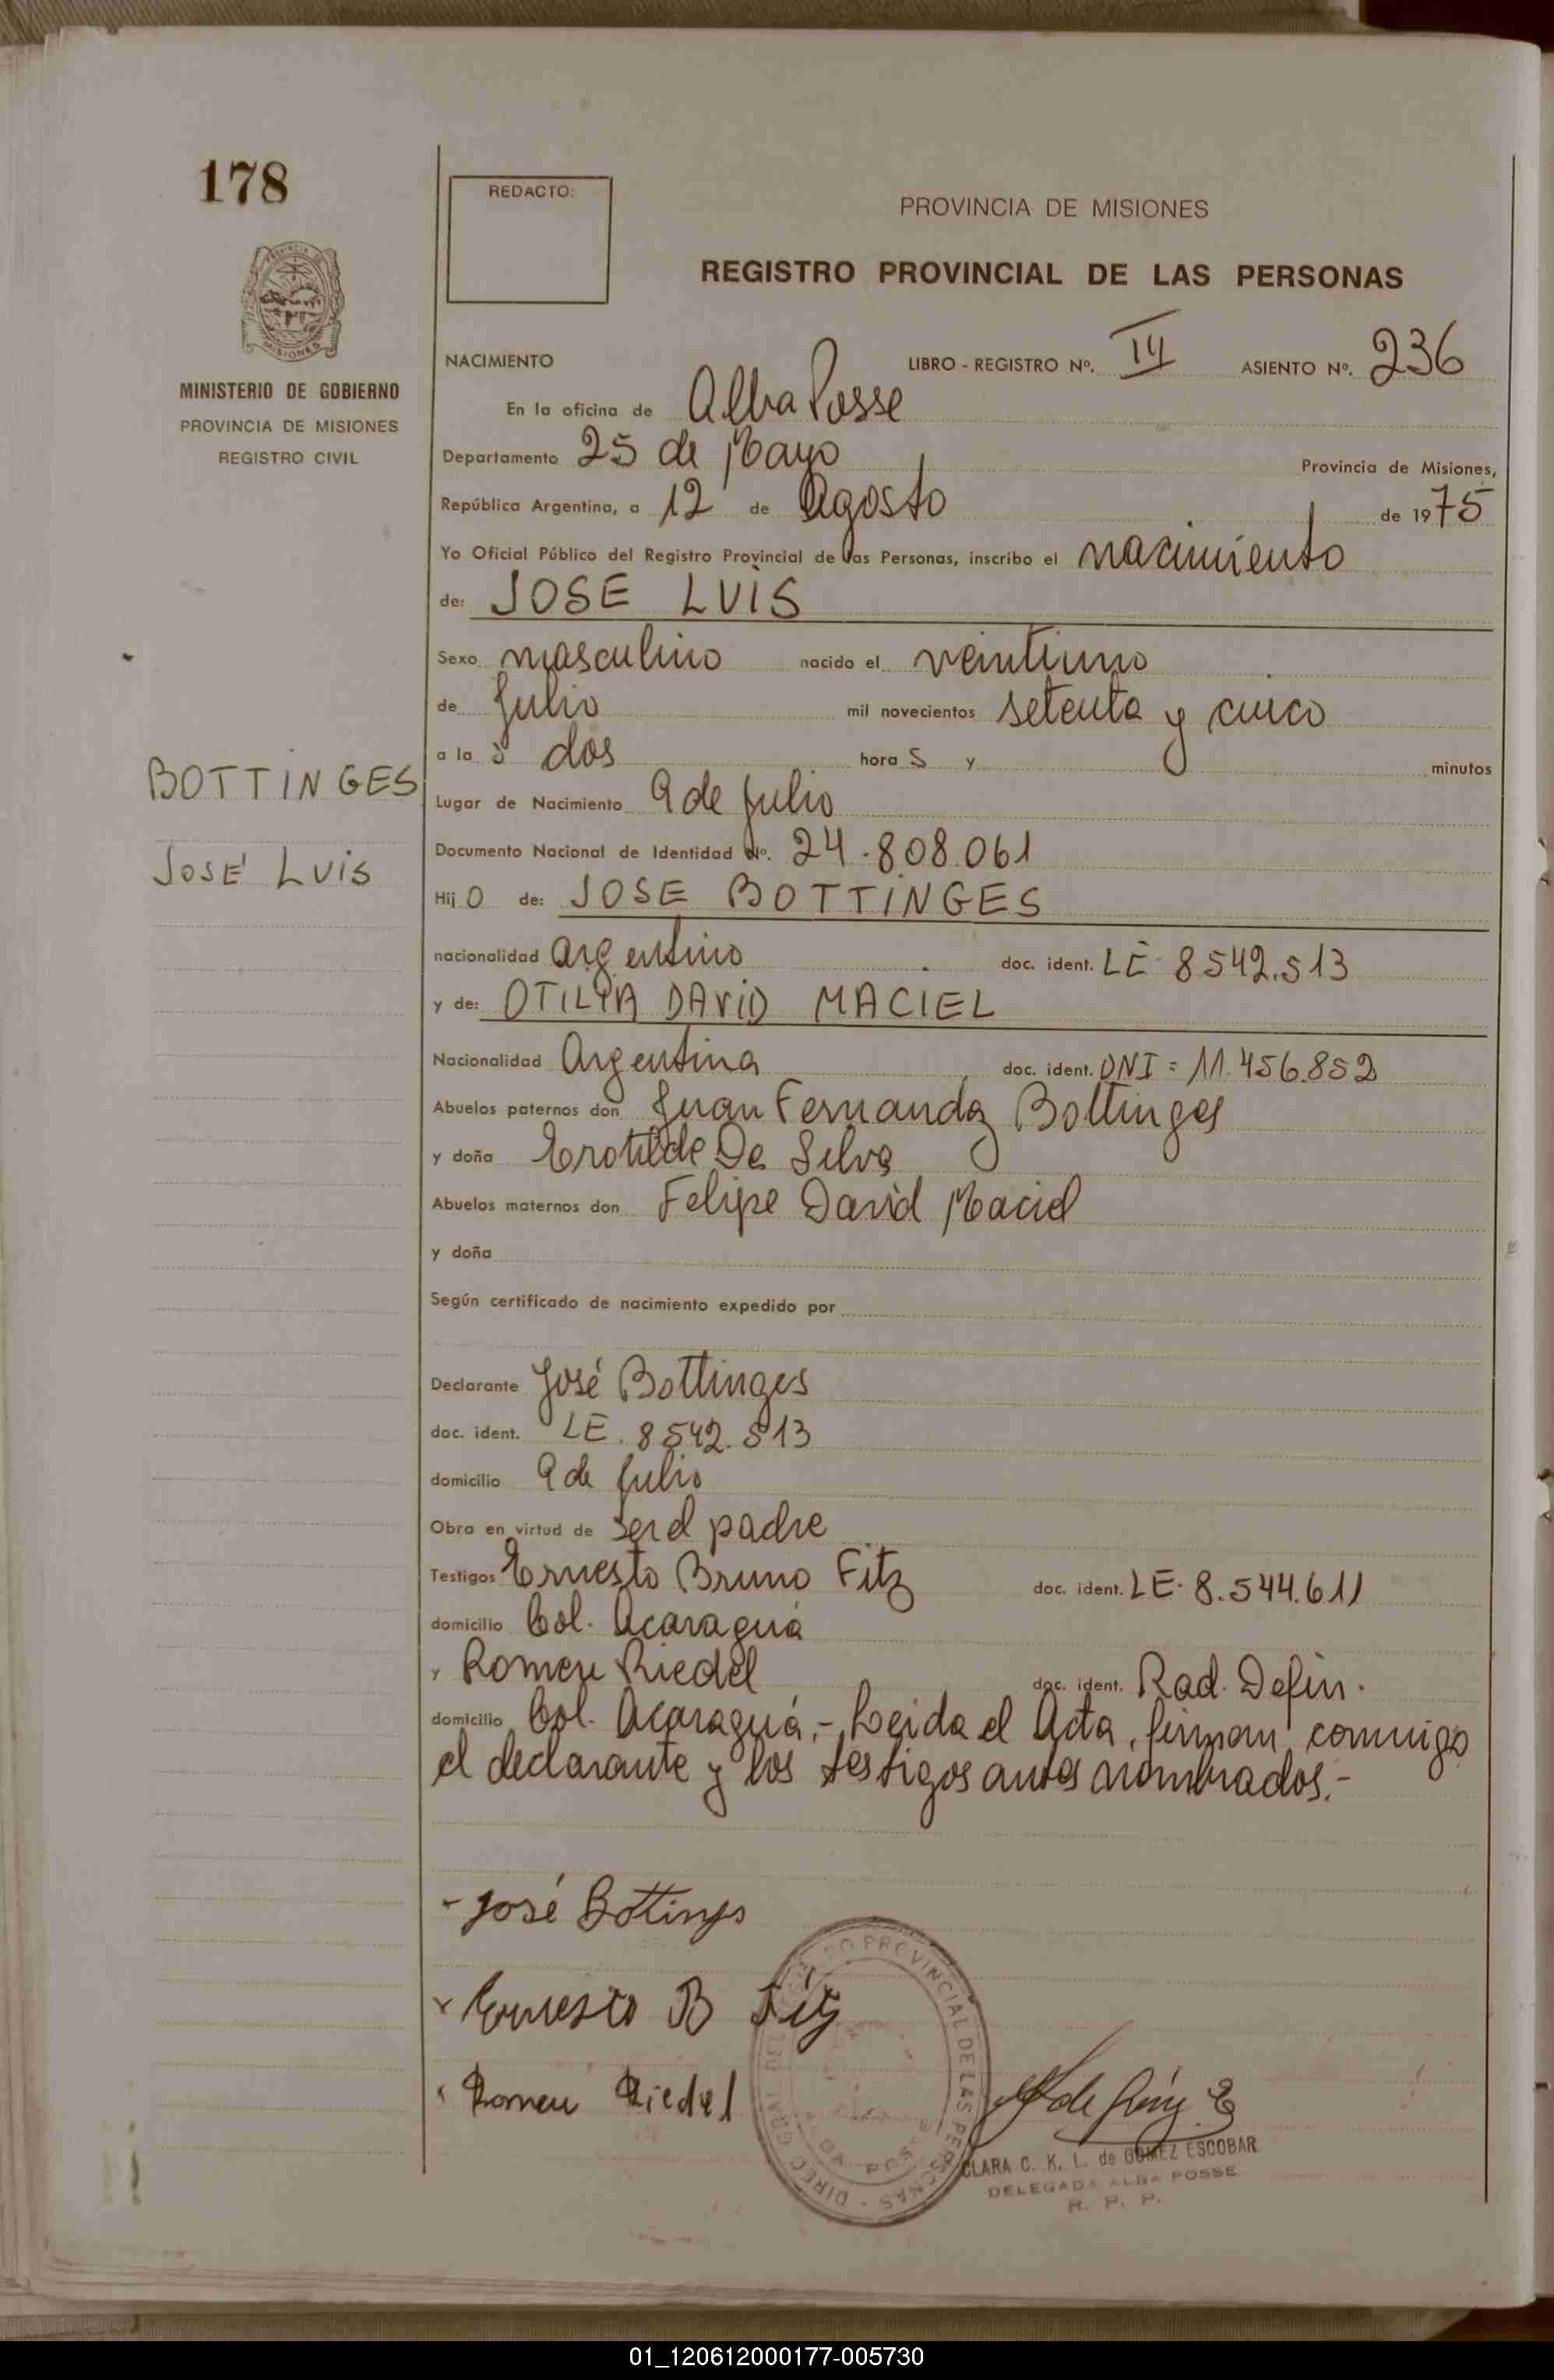 178
REDACTO:
PROVINCIA DE MISIONES
REGISTRO PROVINCIAL DE LAS PERSONAS
MISIONES
MINISTERIO DE GOBIERNO
PROVINCIA DE MISIONES
REGISTRO CIVIL
NACIMIENTO LIBRO - REGISTRO Nº. ASIENTO Nº. 236
En la oficina de Alba Posse
Departamento 25 de Mayo Provincia de Misiones,
República Argentina, a 12 de Agosto de 1975
Yo Oficial Público del Registro Provincial de las Personas, inscribo el nacimiento
de: JOSE LUIS
Sexo masculino nacido el veintiuno
de Julio mil novecientos setenta y cinco
a la s dos hora s y minutos
BOTTINGES
Lugar de Nacimiento 9 de Julio
JOSÉ LUIS
Documento Nacional de Identidad Nº. 24.808.061
Hij O de: JOSE BOTTINGES
nacionalidad argentino doc. ident. LE 8542.513
y de: OTILIA DAVID MACIEL
Nacionalidad Argentina doc. ident. DNI = 11.456.852
Abuelos paternos don Juan Fernando Bottinges
y doña Erotilde De Silva
Abuelos maternos don Felipe David Maciel
y doña
Según certificado de nacimiento expedido por
Declarante José Bottinges
doc. ident. LE. 8542.513
domicilio 9 de Julio
Obra en virtud de ser el padre
Testigos Ernesto Bruno Fitz doc. ident. LE. 8.544.611
domicilio Col. Acaraguá
y Romeu Riedel doc. ident. Rad. Defin.
domicilio Col. Acaraguá.- Leida el Acta, firman conmigo
el declarante y los testigos antes nombrados.-
- José Bottings
x Ernesto B Fitz
x Romeu Riedel
DIREC. GRAL. DEL REGISTRO PROVINCIAL DE LAS PERSONAS -
CLARA C. K. L. de GOMEZ ESCOBAR
DELEGADA ALBA POSSE
R. P. P.
01_120612000177-005730